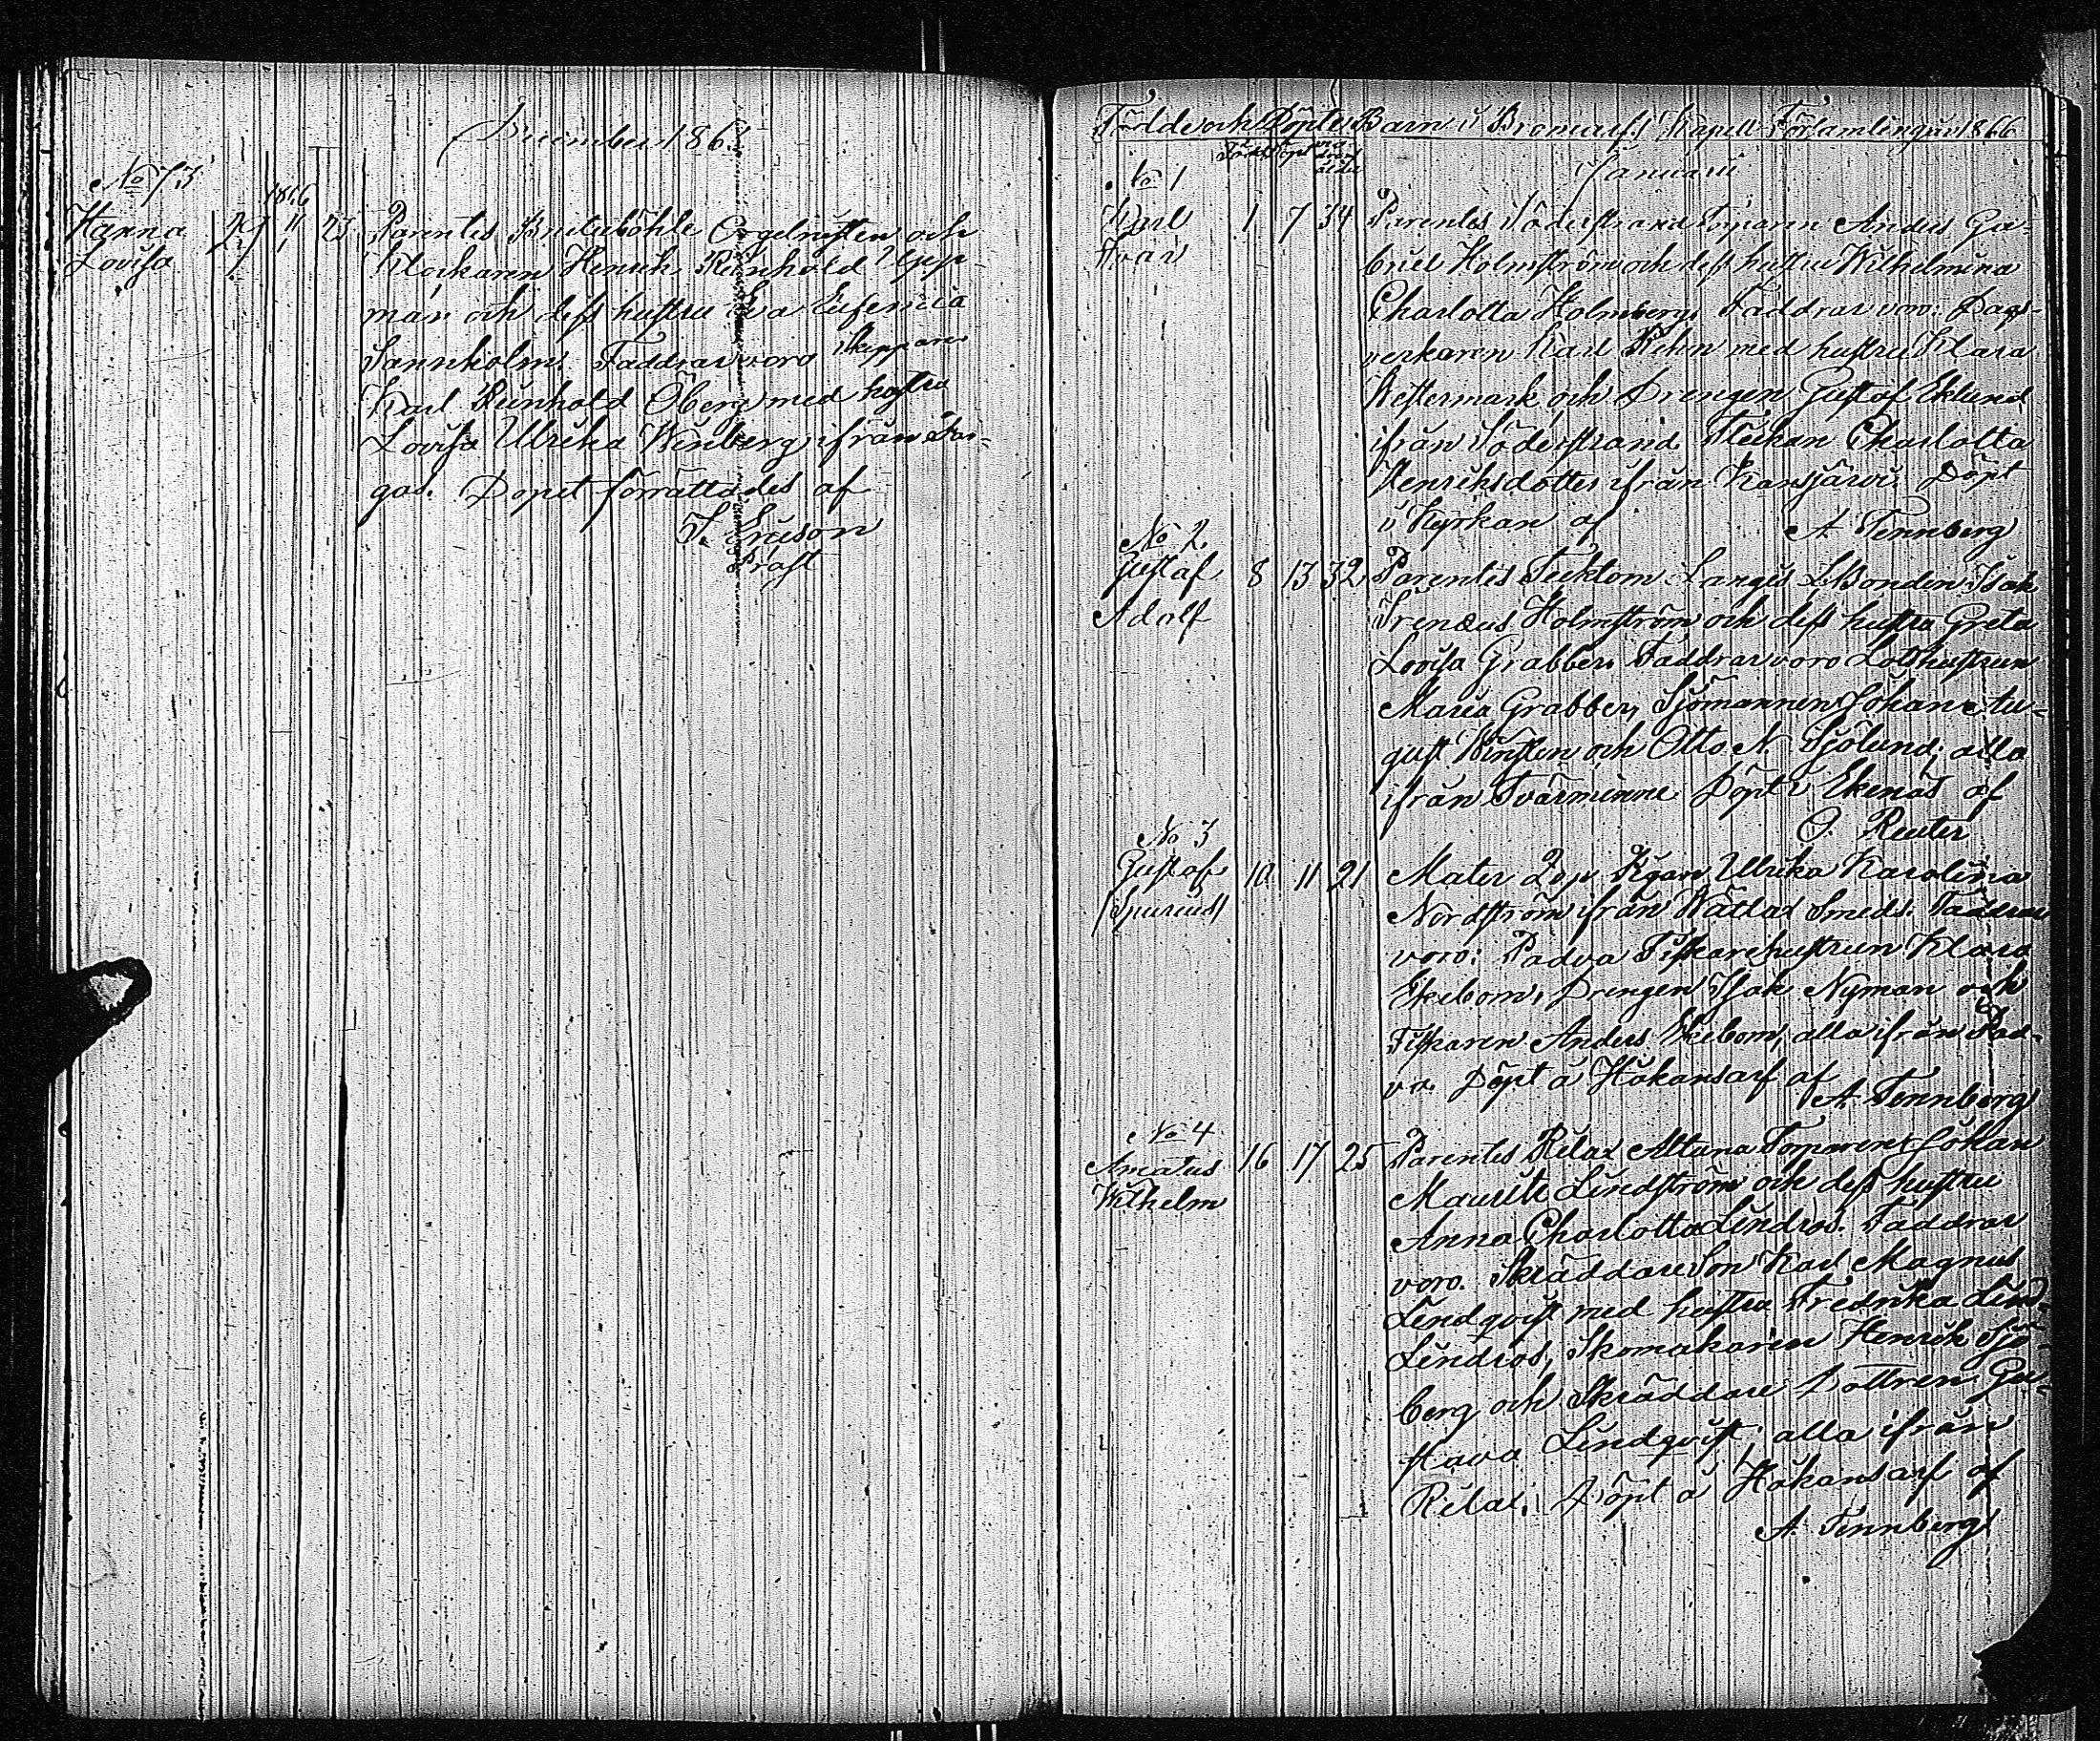 December 186
No 73
1866
Hanna 27 11/1 23 Parentes Orgelnisten och
Lovisa Klockaren Henrik Reinhold
man och dess hustru Eva Eufemia
Sannholm. Faddrar voro Skepparen
Karl Reinhold Öberg med hustru
Lovisa Ulrika Winberg ifrån
gas. Dopet förrättades af
F. Ericson
Präst
Födde och Döpte Barn i Bromarf Kapell Församling år 1866
Född Döpt ålder
Januarii
No 1
Karl 1 7 34 Parentes Söderstrand Torparen Anders Ga-
Ivar briel Holmström och dess hustru Wilhelmina
Charlotta Holmberg. Faddrar voro: Dags-
verkaren Karl Rehn med hustru Klara
Westermark och Drengen Gustaf Eklund
ifrån Söderstrand. Flickan Charlotta
Henriksdotter ifrån Kansjärvi. Döpt
i Kyrkan af A. Tennberg
No 2.
Gustaf 8 13 32 Parentes Tecktom Langis Bonden Isak
Adolf Irenæus Holmström och dess hustru Greta
Lovisa Grabber. Faddrar voro Lotshustrun
Maria Grabber, Sjömannen Johan Au-
gust Winsten och Otto N. Sjölund, alla
ifrån Tvärminne. Döpt i Ekenäs af
O. Reuter
No 3
Gustaf 10 11 21 Mater Pigan Ulrika Karolina
/Spurius/ Nordström ifrån Wättlax Smeds. Faddrar
voro: Padva Fiskarehustrun Klara
Ekebom, Drengen Isak Nyman och
Fiskaren Anders Ekebom, alla ifrån Pad-
va. Döpt å Håkansarf af
A. Tennberg
No 4
Amatus 16 17 25 Parentes Rilax Altuna Torparen Johan
Wilhelm Mauritz Lindström och dess hustru
Anna Charlotta Lindros. Faddrar
voro. Skräddare Son Karl Magnus
Lindqvist med hustru Fredrika Lind-
Lindros, Skomakaren Henrik Sjö-
berg och Skräddare Dottren Gu-
stava Lindqvist, alla ifrån
Rilax. Döpt å Håkansarf af
A. Tennberg